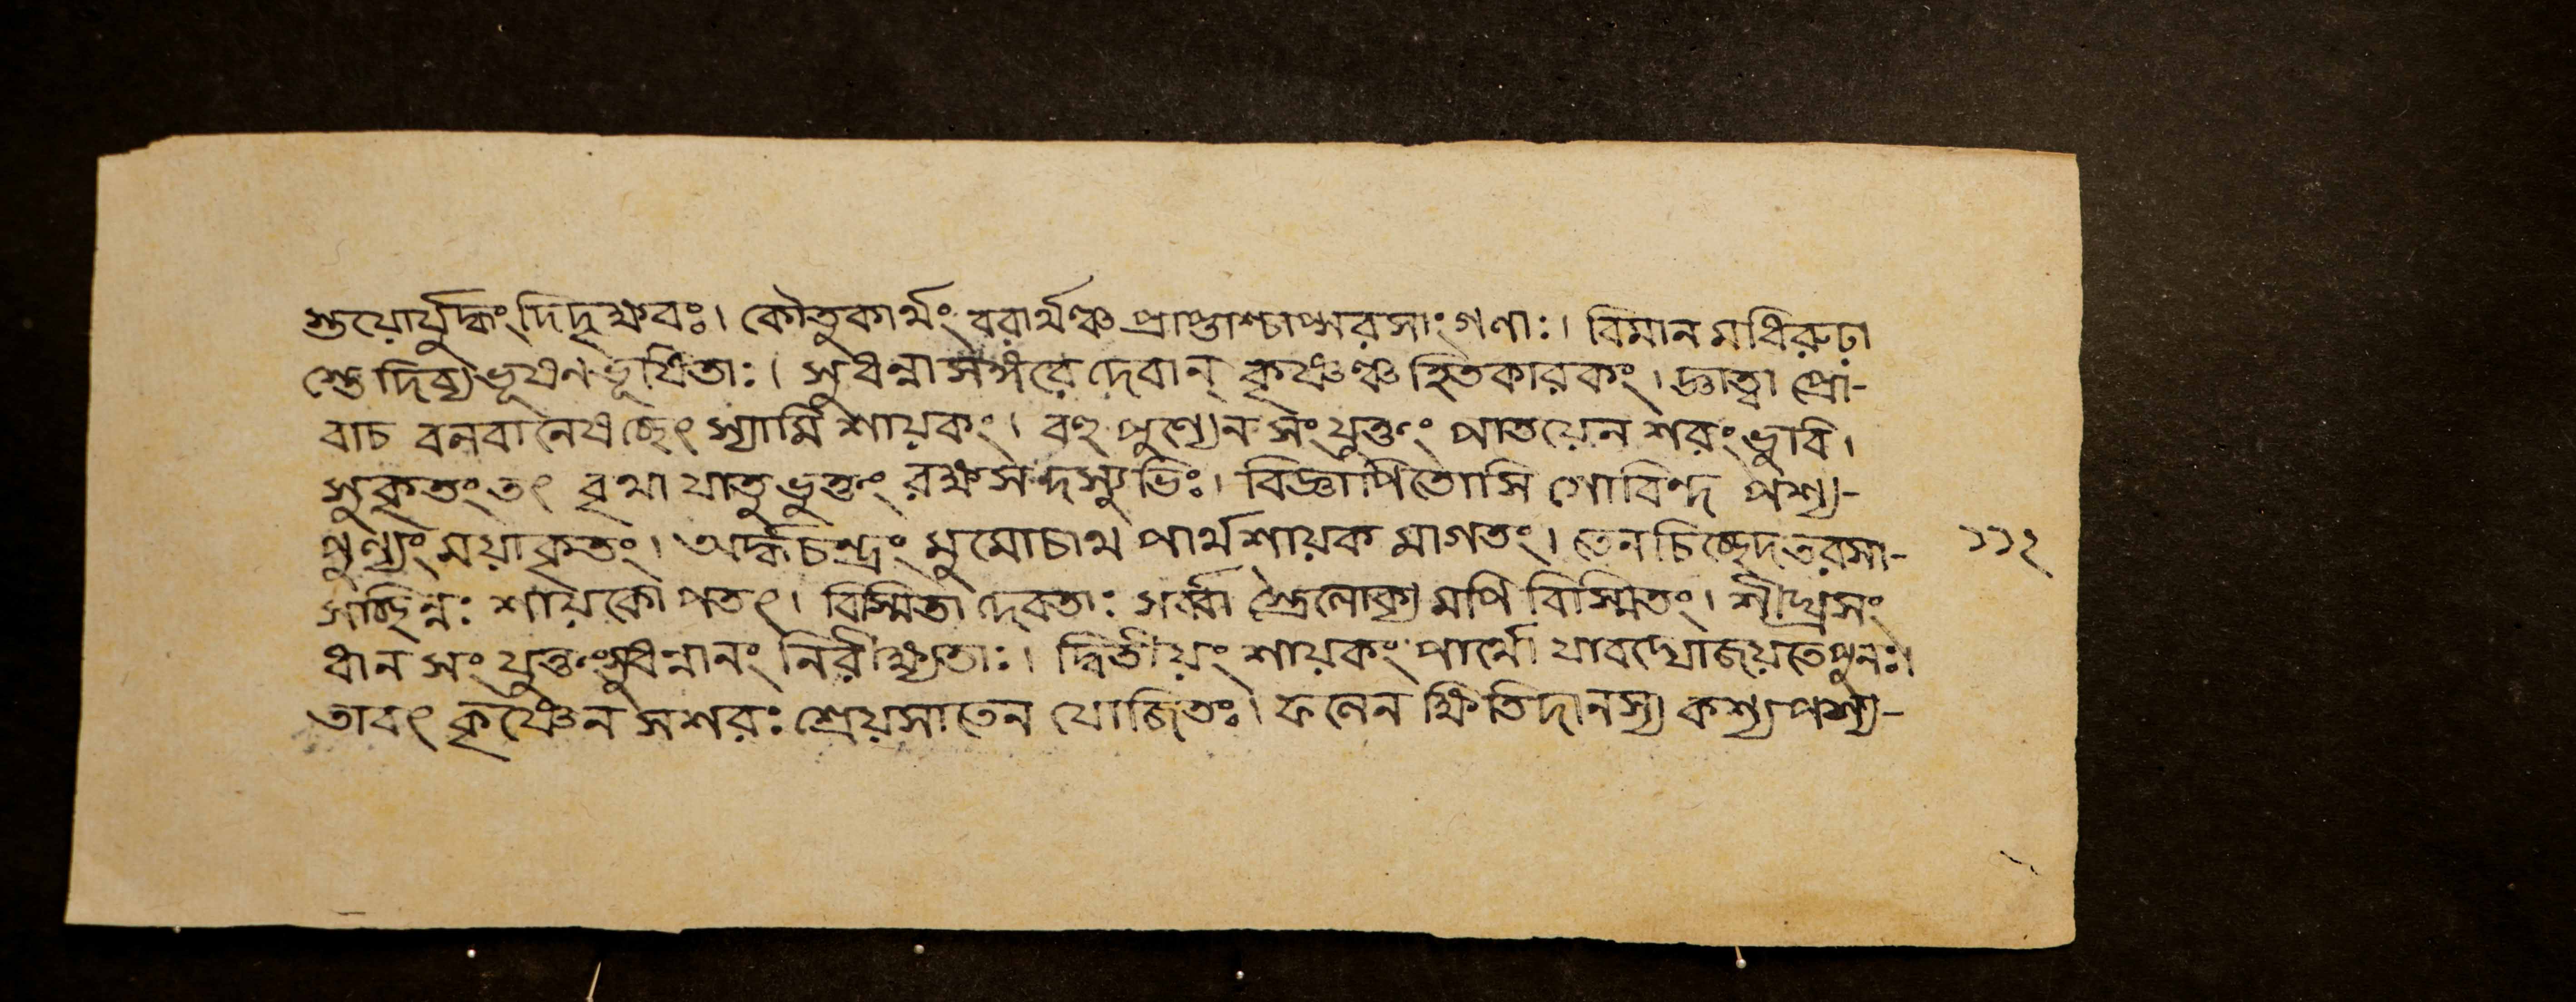 স্তয়োর্যুদ্ধং দিদৃক্ষবঃ। কৌতুকার্থং বরার্থঞ্চ প্রাপ্তাশ্চাপ্সরসাং গণাঃ। বিমান মধিরুঢ়া
স্তে দিব্য ভূষণ ভূষিতাঃ। সুধন্বা সঙ্গরে দেবান্ কৃষ্ণঞ্চ হিতকারকং। জ্ঞাত্বা প্রো-
বাচ বলবানেষ ছেৎস্যামি শায়কং। বহু পুণ্যেন সংযুক্তং পাতয়েন শরং ভুবি।
সুকৃতং তৎ বৃথা যাতু ভুক্তং রক্ষস দস্যুভিঃ। বিজ্ঞাপিতোসি গোবিন্দ পশ্য-
পুণ্যং ময়াকৃতং। অর্দ্ধচন্দ্রং মুমোচাথ পার্থ শায়ক মাগতং। তেন চিচ্ছেদ তরসা- ১১২
সচ্ছিন্নঃ শায়কো পতৎ। বিস্মিতা দেবতাঃ সর্ব্বা স্ত্রৈলোক্য মপি বিস্মিতং। শীঘ্রসং
ধান সংযুক্তং সুধন্বানং নিরীক্ষ্যতাঃ। দ্বিতীয়ং শায়কং পার্থো যাবদ্যোজয়তে পুনঃ।
তাবৎ কৃষ্ণেন সশরঃ শ্রেয়সা তেন যোজিতঃ। ফলেন ক্ষিতিদানস্য কশ্য পশ্য-